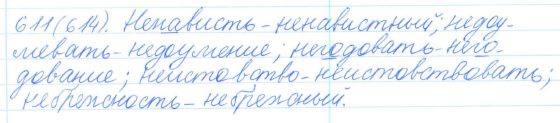 611(614). Ненависть - ненавистный; недоу-
мевать - недоумение; негодовать - него-
дование; неистовство - неистовствовать;
небрежность - небрежный.